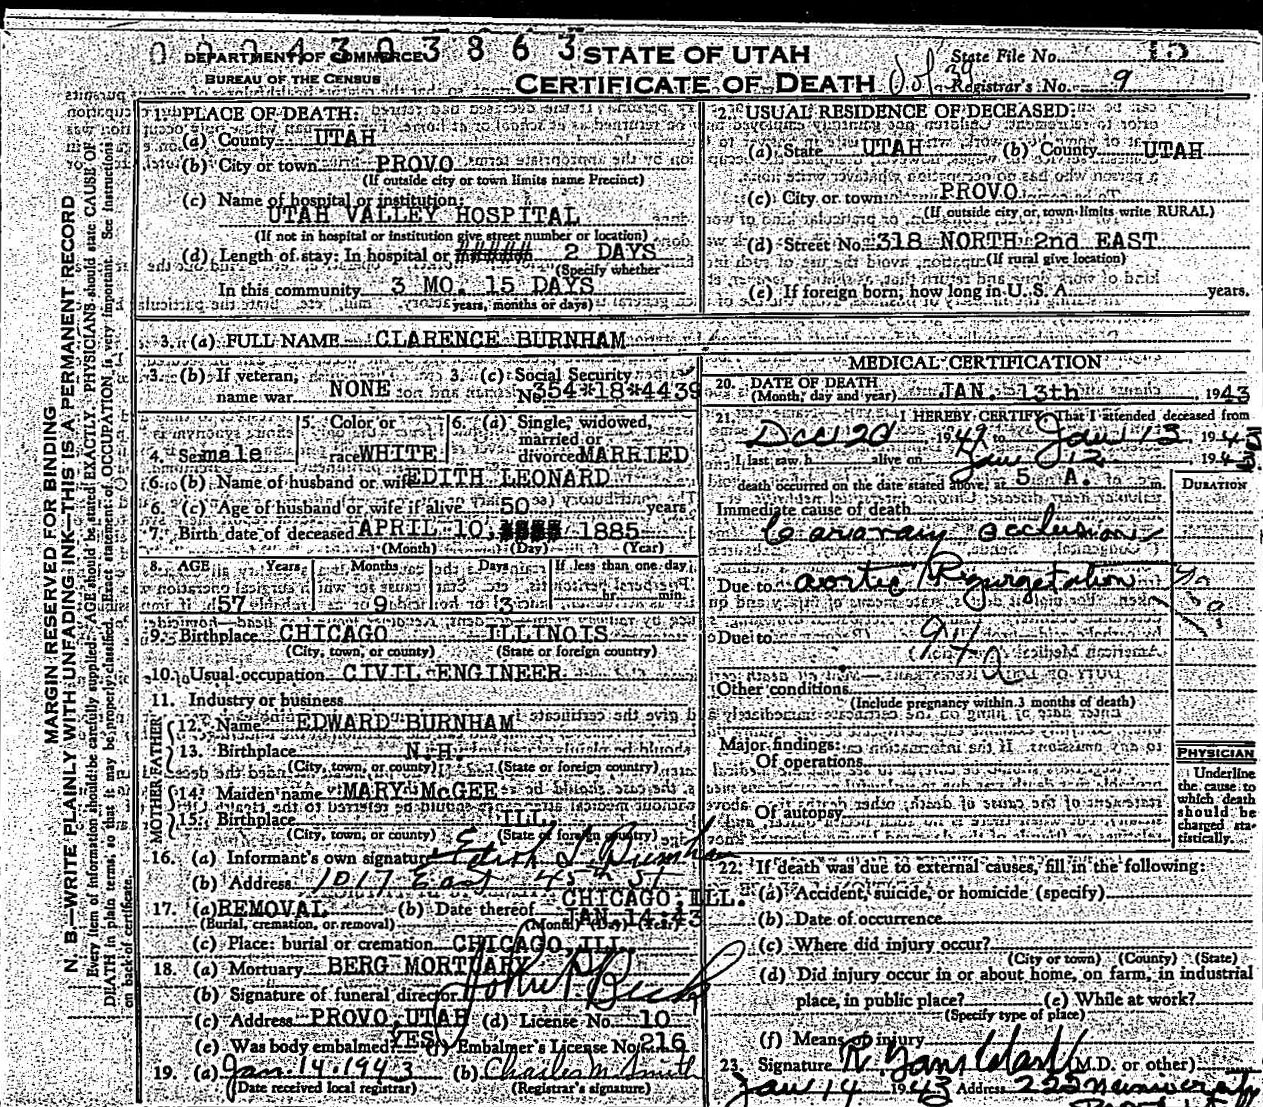 0 0 0 4 3 0 3 8 6 3
DEPARTMENT OF COMMERCE
BUREAU OF THE CENSUS
STATE OF UTAH
CERTIFICATE OF DEATH
State File No. 15
Registrar's No. 9
MARGIN RESERVED FOR BINDING
N. B.—WRITE PLAINLY WITH UNFADING INK—THIS IS A PERMANENT RECORD
Every item of information should be carefully supplied. AGE should be stated EXACTLY. PHYSICIANS should state CAUSE OF
DEATH in plain terms, so that it may be properly classified. Exact statement of OCCUPATION is very important. See instructions
on back of certificate.
1. PLACE OF DEATH:
(a) County UTAH
(b) City or town PROVO
(If outside city or town limits name Precinct)
(c) Name of hospital or institution:
UTAH VALLEY HOSPITAL
(If not in hospital or institution give street number or location)
(d) Length of stay: In hospital or 2 DAYS
(Specify whether
In this community 3 MO. 15 DAYS
years, months or days)
2. USUAL RESIDENCE OF DECEASED:
(a) State UTAH (b) County UTAH
(c) City or town PROVO
(If outside city or town limits write RURAL)
(d) Street No. 318 NORTH 2nd EAST
(If rural give location)
(e) If foreign born, how long in U. S. A. years.
3. (a) FULL NAME CLARENCE BURNHAM
3. (b) If veteran, name war NONE
3. (c) Social Security No. 354*18*4439
4. Sex male
5. Color or race WHITE
6. (a) Single, widowed, married or divorced MARRIED
6. (b) Name of husband or wife EDITH LEONARD
6. (c) Age of husband or wife if alive 50 years
7. Birth date of deceased APRIL 10, 1885
(Month) (Day) (Year)
8. AGE Years Months Days If less than one day
57 9 3 hr. min.
9. Birthplace CHICAGO ILLINOIS
(City, town, or county) (State or foreign country)
10. Usual occupation CIVIL ENGINEER
11. Industry or business
FATHER
12. Name EDWARD BURNHAM
13. Birthplace N.H.
(City, town, or county) (State or foreign country)
MOTHER
14. Maiden name MARY McGEE
15. Birthplace ILL.
(City, town, or county) (State or foreign country)
16. (a) Informant's own signature Edith L. Burnham
(b) Address 1017 East 45th St
CHICAGO, ILL.
17. (a) REMOVAL (b) Date thereof JAN. 14-43
(Burial, cremation, or removal) (Month) (Day) (Year)
(c) Place: burial or cremation CHICAGO, ILL.
18. (a) Mortuary BERG MORTUARY
(b) Signature of funeral director
(c) Address PROVO, UTAH (d) License No. 10
(e) Was body embalmed? YES (f) Embalmer's License No. 216
19. (a) Jan. 14. 1943 (b) Charles M. Smith
(Date received local registrar) (Registrar's signature)
MEDICAL CERTIFICATION
20. DATE OF DEATH
(Month, day and year) JAN. 13th, 1943
21. I HEREBY CERTIFY, That I attended deceased from
Dec 20 1942 to Jan 13 1943
I last saw h alive on Jan 12 194
death occurred on the date stated above, at 5 A. m.
DURATION
Immediate cause of death
Coronary occlusion
Due to aortic Regurgitation
Due to
94 a
Other conditions
(Include pregnancy within 3 months of death)
Major findings:
Of operations
Of autopsy
PHYSICIAN
Underline
the cause to
which death
should be
charged sta-
tistically.
22. If death was due to external causes, fill in the following:
(a) Accident, suicide, or homicide (specify)
(b) Date of occurrence
(c) Where did injury occur?
(City or town) (County) (State)
(d) Did injury occur in or about home, on farm, in industrial
place, in public place? (e) While at work?
(Specify type of place)
(f) Means of injury
23. Signature (M.D. or other)
Jan 14 1943 Address